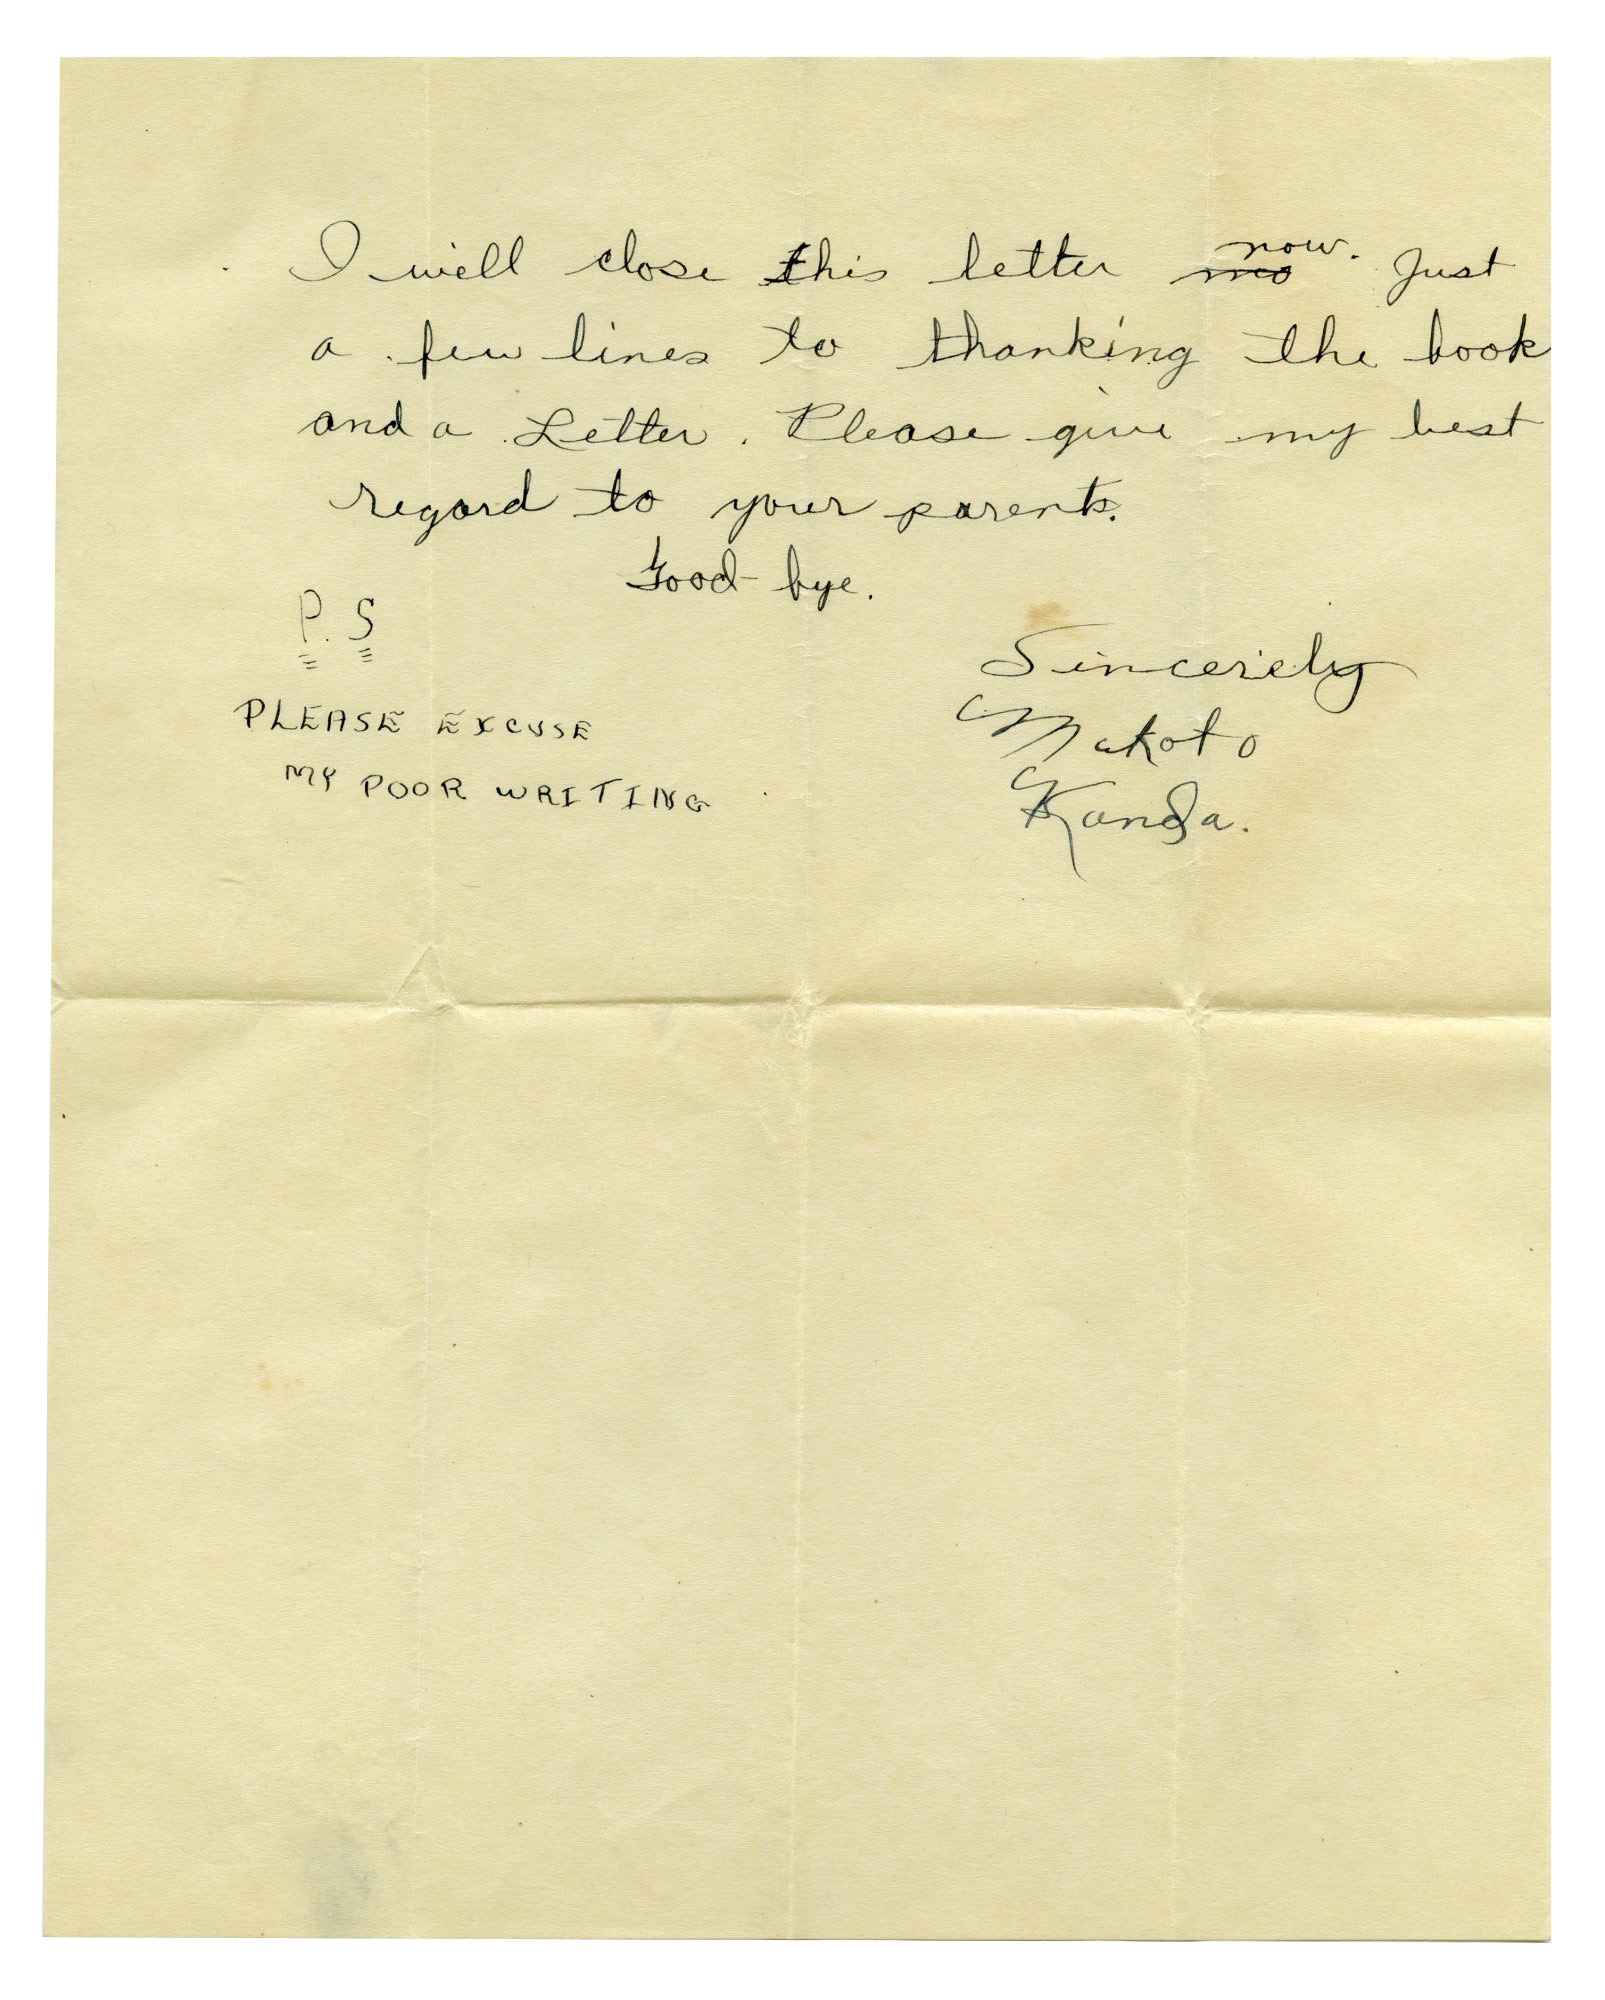 I will close this letter now. Just
a few lines to thanking the book
and a Letter. Please give my best
regard to your parents.
Good-bye.
P.S
Sincerely
Makoto
Kanda.
PLEASE EXCUSE
MY POOR WRITING